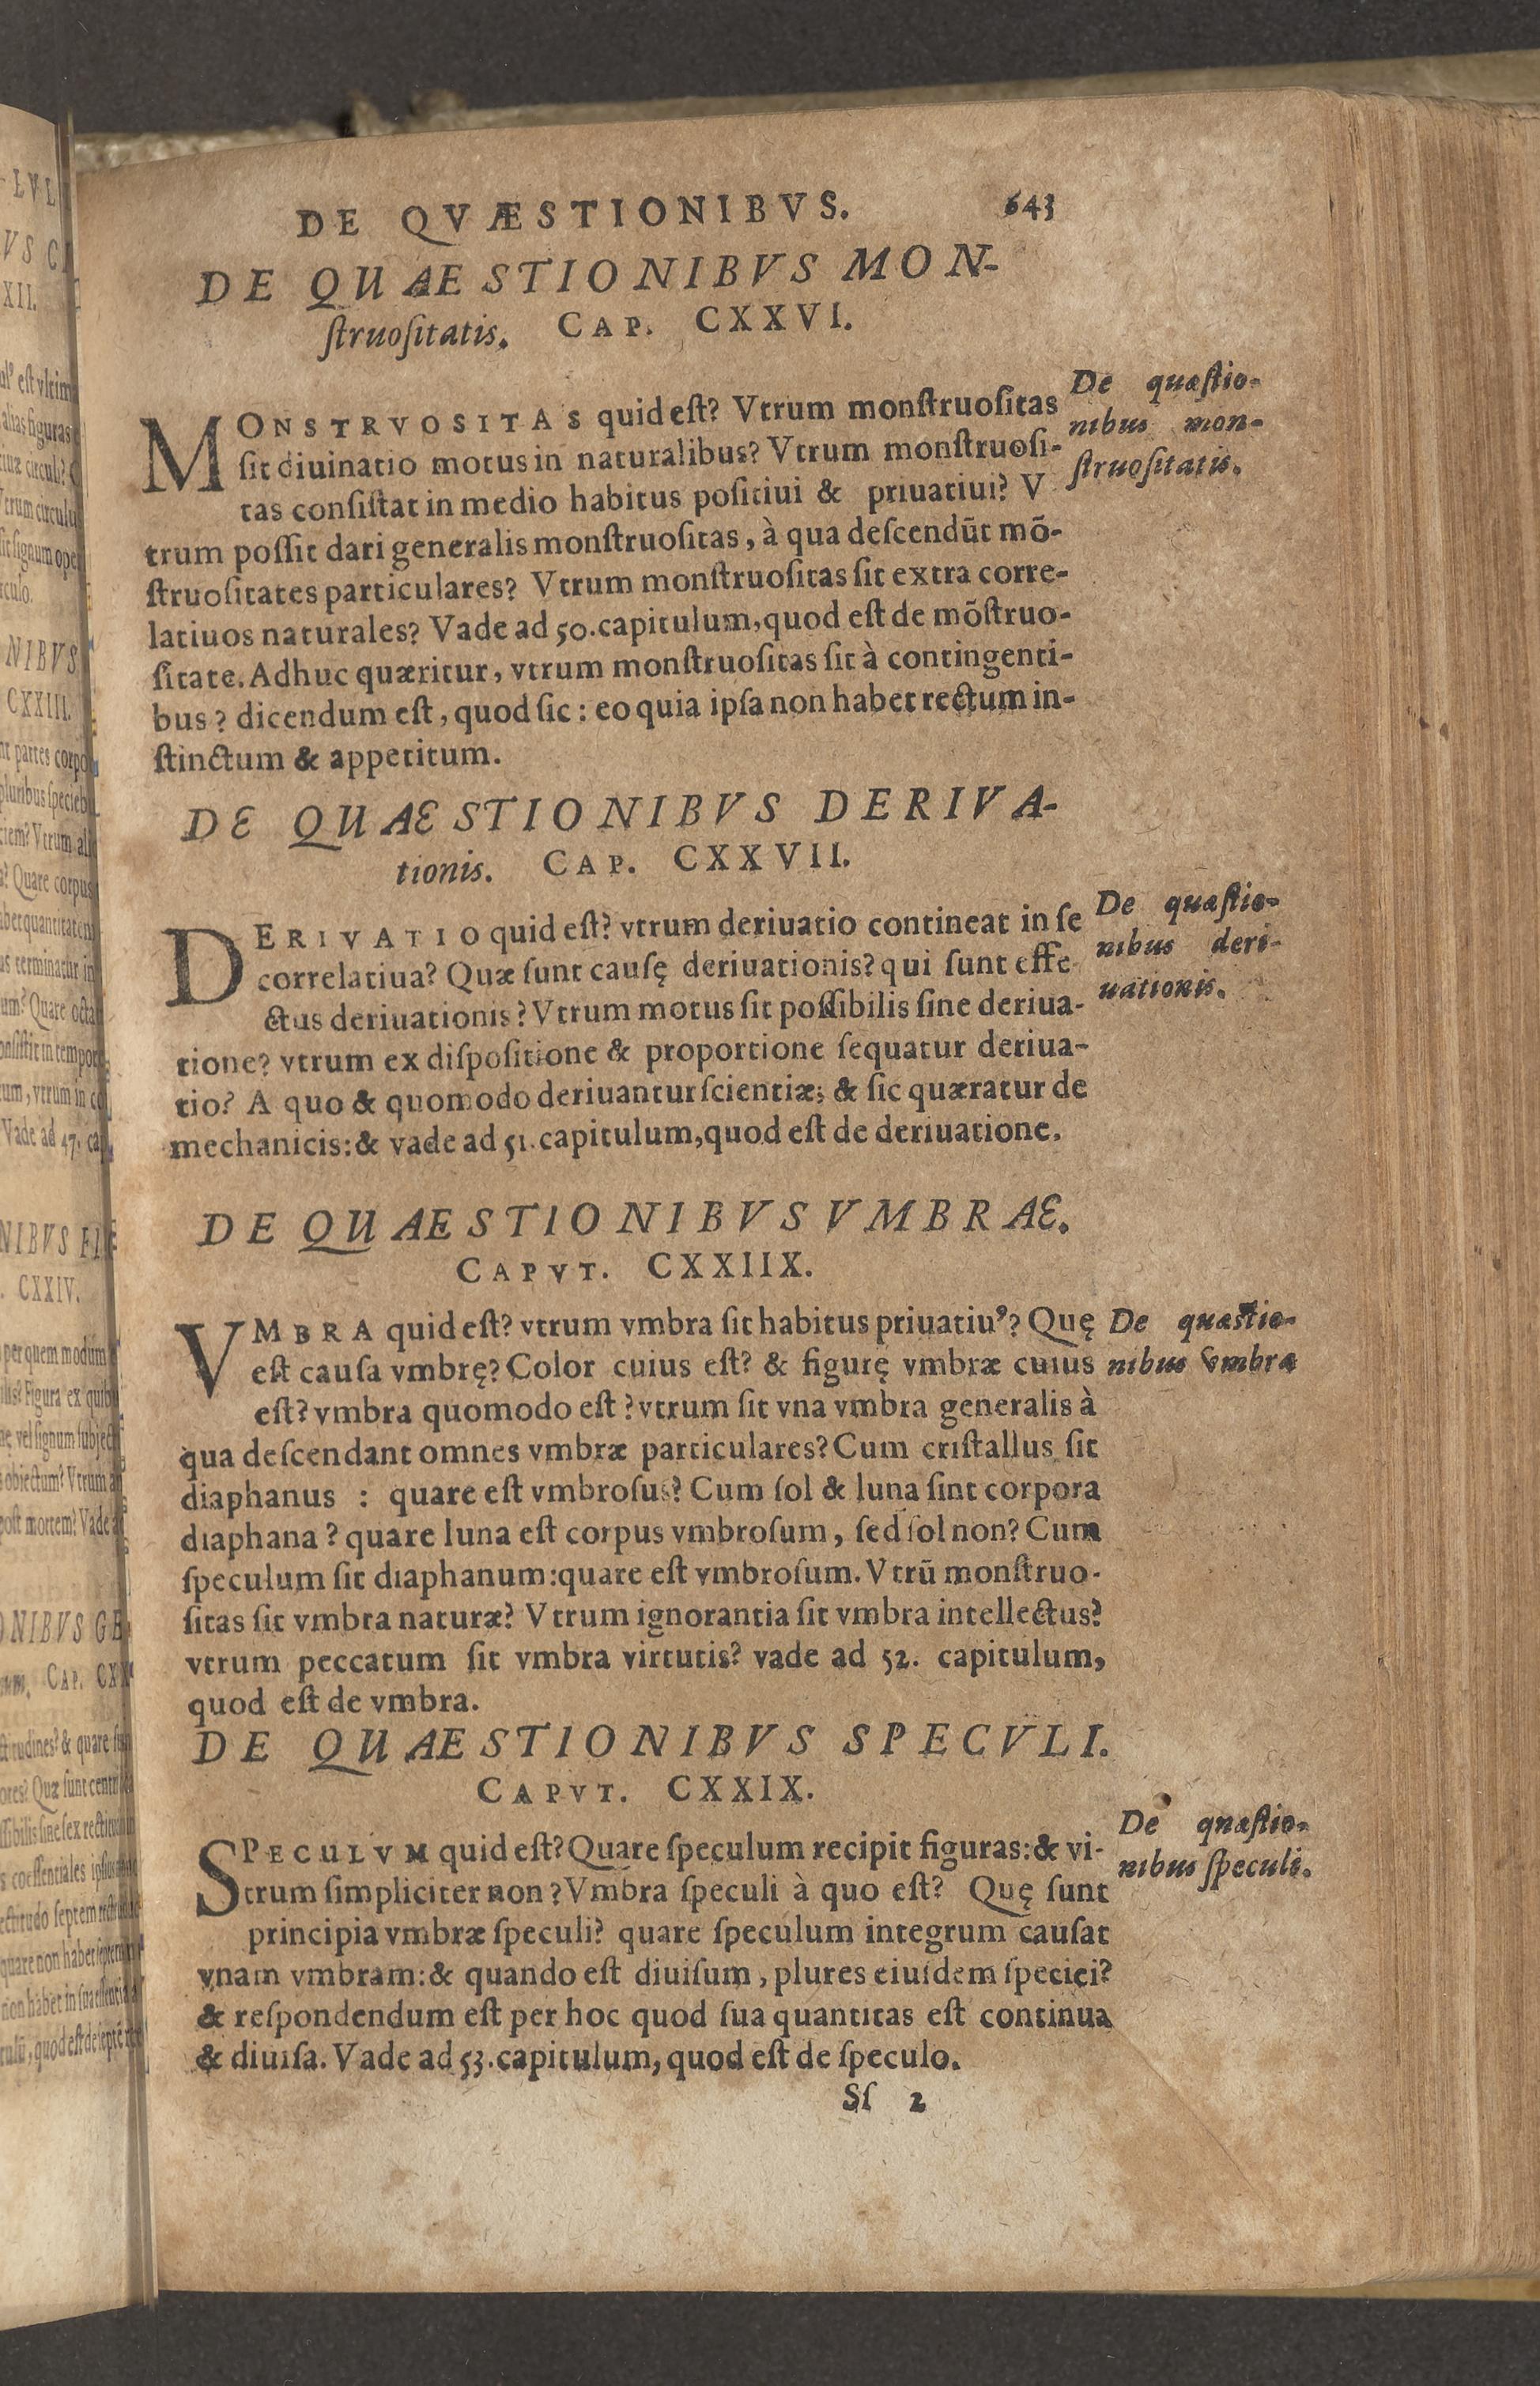 DE QVÆSTIONIBVS. 643
DE QUAESTIONIBVS MON-
ſtruoſitatis. CAP. CXXVI.
De quæſtio-
nibus mon-
ſtruoſitatis.
MONSTRVOSITAS quid eſt? Vtrum monſtruoſitas
ſit diuinatio motus in naturalibus? Vtrum monſtruoſi-
tas conſiſtat in medio habitus poſitiui & priuatiui? V
trum poſſit dari generalis monſtruoſitas, à qua deſcendūt mõ-
ſtruoſitates particulares? Vtrum monſtruoſitas ſit extra corre-
latiuos naturales? Vade ad 50. capitulum, quod eſt de mõſtruo-
ſitate. Adhuc quæritur, vtrum monſtruoſitas ſit à contingenti-
bus? dicendum eſt, quod ſic: eo quia ipſa non habet rectum in-
ſtinctum & appetitum.
DE QUAESTIONIBVS DERIVA-
tionis. CAP. CXXVII.
De quæſtio-
nibus deri-
uationis.
DERIVATIO quid eſt? vtrum deriuatio contineat in ſe
correlatiua? Quæ ſunt cauſę deriuationis? qui ſunt effe
ctus deriuationis? Vtrum motus ſit poſſibilis ſine deriua-
tione? vtrum ex diſpoſitione & proportione ſequatur deriua-
tio? A quo & quomodo deriuantur ſcientiæ; & ſic quæratur de
mechanicis: & vade ad 51. capitulum, quod eſt de deriuatione.
DE QUAESTIONIBVS VMBRAE.
CAPVT. CXXIIX.
De quæſtio-
nibus vmbræ
VMBRA quid eſt? vtrum vmbra ſit habitus priuatiuꝰ? Quę
eſt cauſa vmbrę? Color cuius eſt? & figurę vmbræ cuius
eſt? vmbra quomodo eſt? vtrum ſit vna vmbra generalis à
qua deſcendant omnes vmbræ particulares? Cum criſtallus ſit
diaphanus : quare eſt vmbroſus? Cum ſol & luna ſint corpora
diaphana? quare luna eſt corpus vmbroſum, ſed ſol non? Cum
ſpeculum ſit diaphanum: quare eſt vmbroſum. Vtrū monſtruo-
ſitas ſit vmbra naturæ? Vtrum ignorantia ſit vmbra intellectus?
vtrum peccatum ſit vmbra virtutis? vade ad 52. capitulum,
quod eſt de vmbra.
DE QUAESTIONIBVS SPECVLI.
CAPVT. CXXIX.
De quæſtio-
nibus ſpeculi.
SPECULVM quid eſt? Quare ſpeculum recipit figuras: & vi-
trum ſimpliciter non? Vmbra ſpeculi à quo eſt? Quę ſunt
principia vmbræ ſpeculi? quare ſpeculum integrum cauſat
vnam vmbram: & quando eſt diuiſum, plures eiuſdem ſpeciei?
& reſpondendum eſt per hoc quod ſua quantitas eſt continua
& diuiſa. Vade ad 53. capitulum, quod eſt de ſpeculo.
Sſ 2